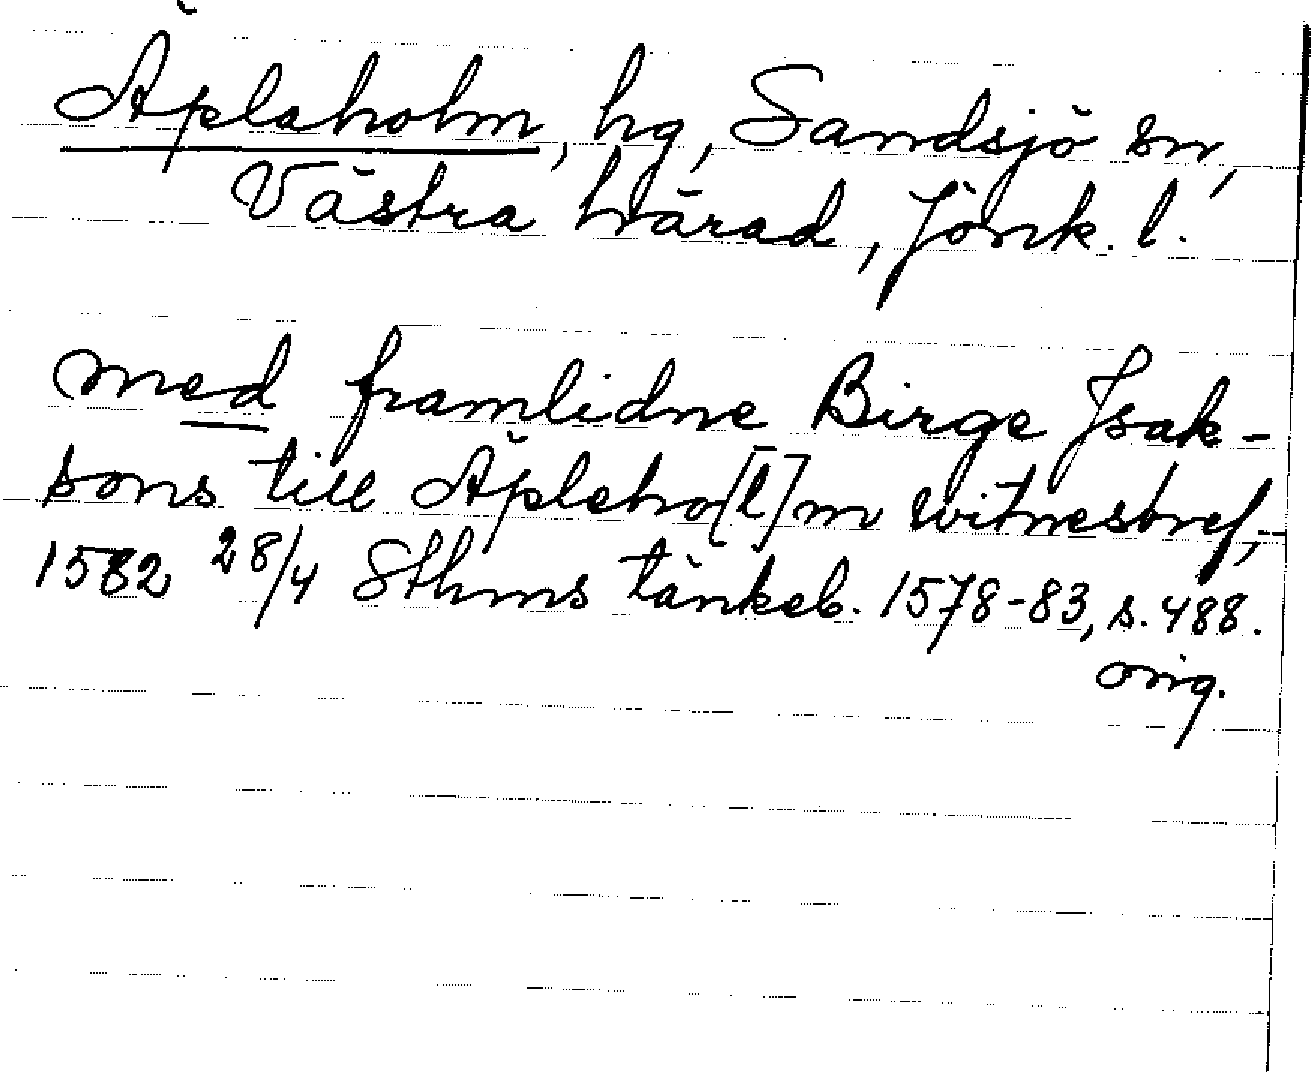 Äplaholm, hg, Sandsjö sn,
Västra härad, Jönk. l.
med framlidne Birge Isak-
sons till Äpleho[l]m witnesbref,
1582 28/4 Sthms tänkeb. 1578-83, s. 488.
orig.